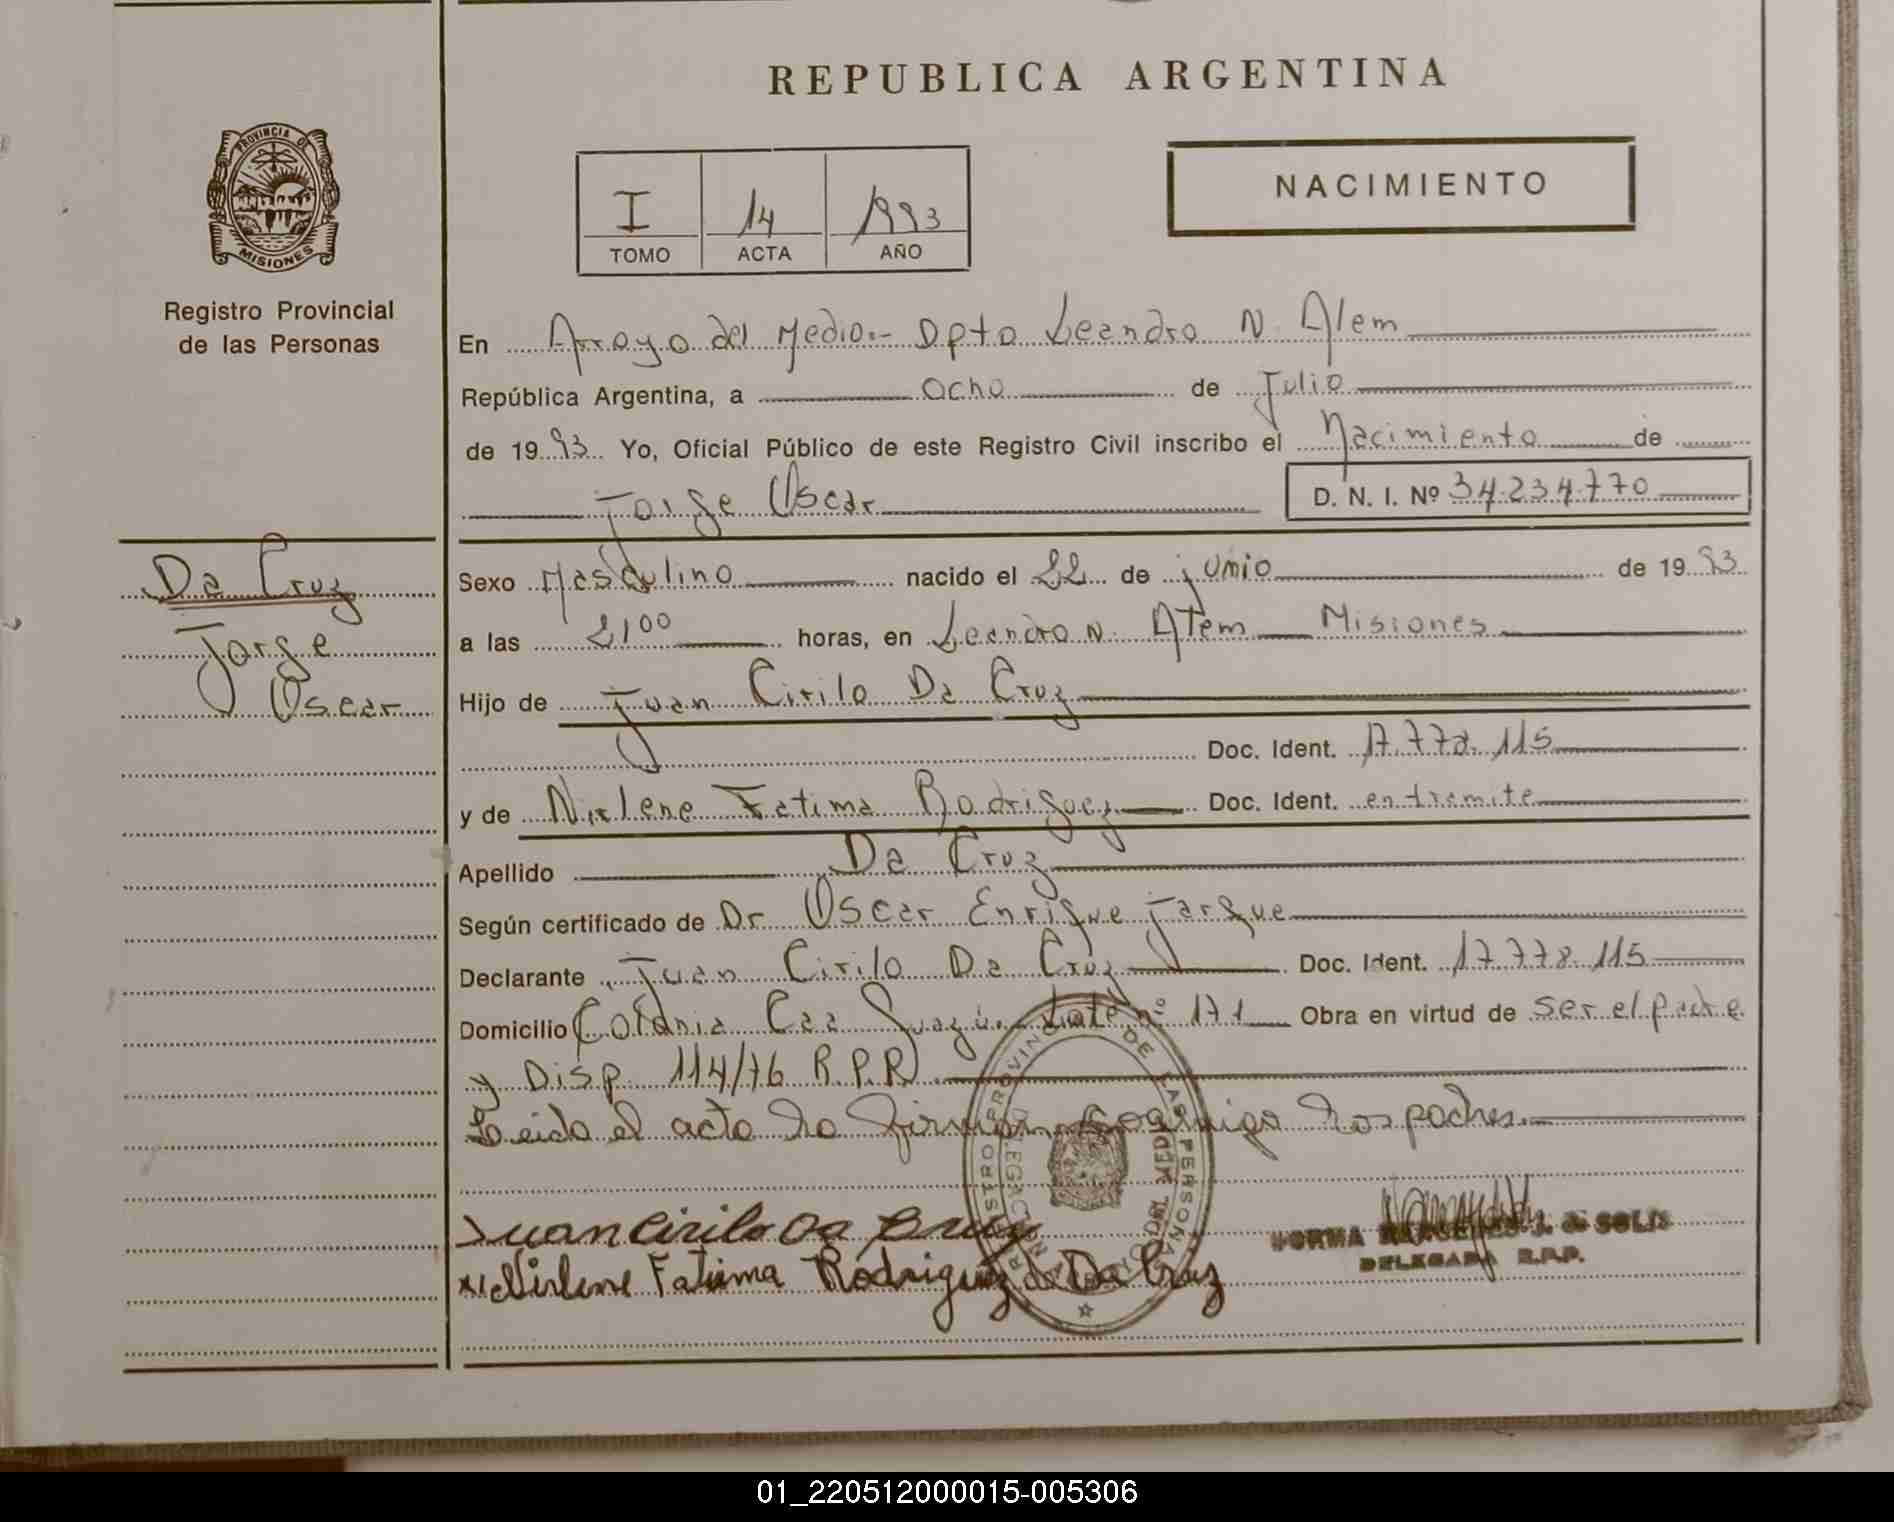 REPUBLICA ARGENTINA
PROVINCIA DE
MISIONES
Registro Provincial
de las Personas
I 14 1993
TOMO ACTA AÑO
NACIMIENTO
En Arroyo del Medio.- Dpto Leandro N. Alem
República Argentina, a ocho de Julio
de 1993 Yo, Oficial Público de este Registro Civil inscribo el Nacimiento de
Jorge Oscar D. N. I. Nº 34.234.770
Da Cruz
Jorge
Oscar
Sexo Masculino nacido el 22 de junio de 1993
a las 21 00 horas, en Leandro N. Alem Misiones
Hijo de Juan Cirilo Da Cruz
Doc. Ident. 17.778.115
y de Nirlene Fatima Rodriguez Doc. Ident. en tramite
Apellido Da Cruz
Según certificado de Dr Oscar Enrique Jarque
Declarante Juan Cirilo Da Cruz Doc. Ident. 17.778.115
Domicilio Colonia Caa Guazú. Lote nº 171 Obra en virtud de ser el padre
y Disp 114/76 R.P.P.
Leida el acta la firman conmigo los padres.
Juan Cirilo Da Cruz
Nirlene Fatima Rodriguez de Da Cruz
NORMA J. de SOLIS
DELEGADA R.P.P.
REGISTRO PROVINCIAL DE LAS PERSONAS
01_220512000015-005306